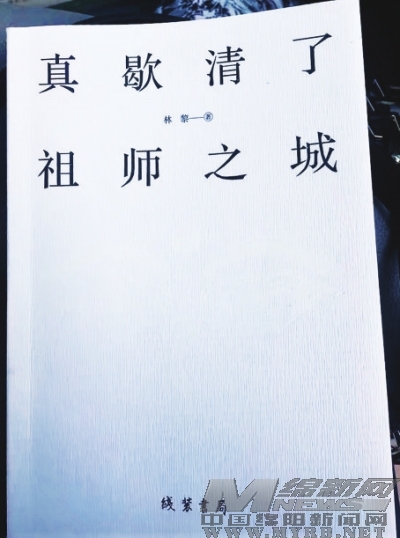 真歇清了
林黎——著
祖师之城
线装书局
绵新网
MNEWS
中国绵阳新闻网
WWW.MYRB.NET